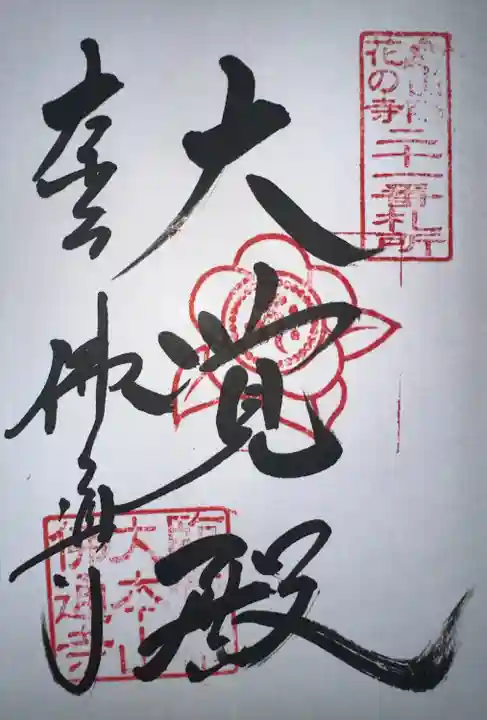 花の寺
二十一番札所
大覚殿
佛通寺
大本山
佛通寺